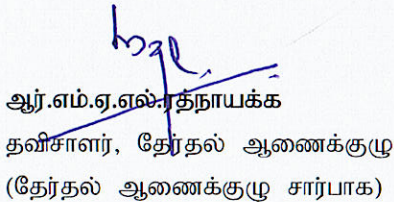 ஆர்.எம்.ஏ.எல்.ரத்நாயக்க
தவிசாளர், தேர்தல் ஆணைக்குழு
(தேர்தல் ஆணைக்குழு சார்பாக)